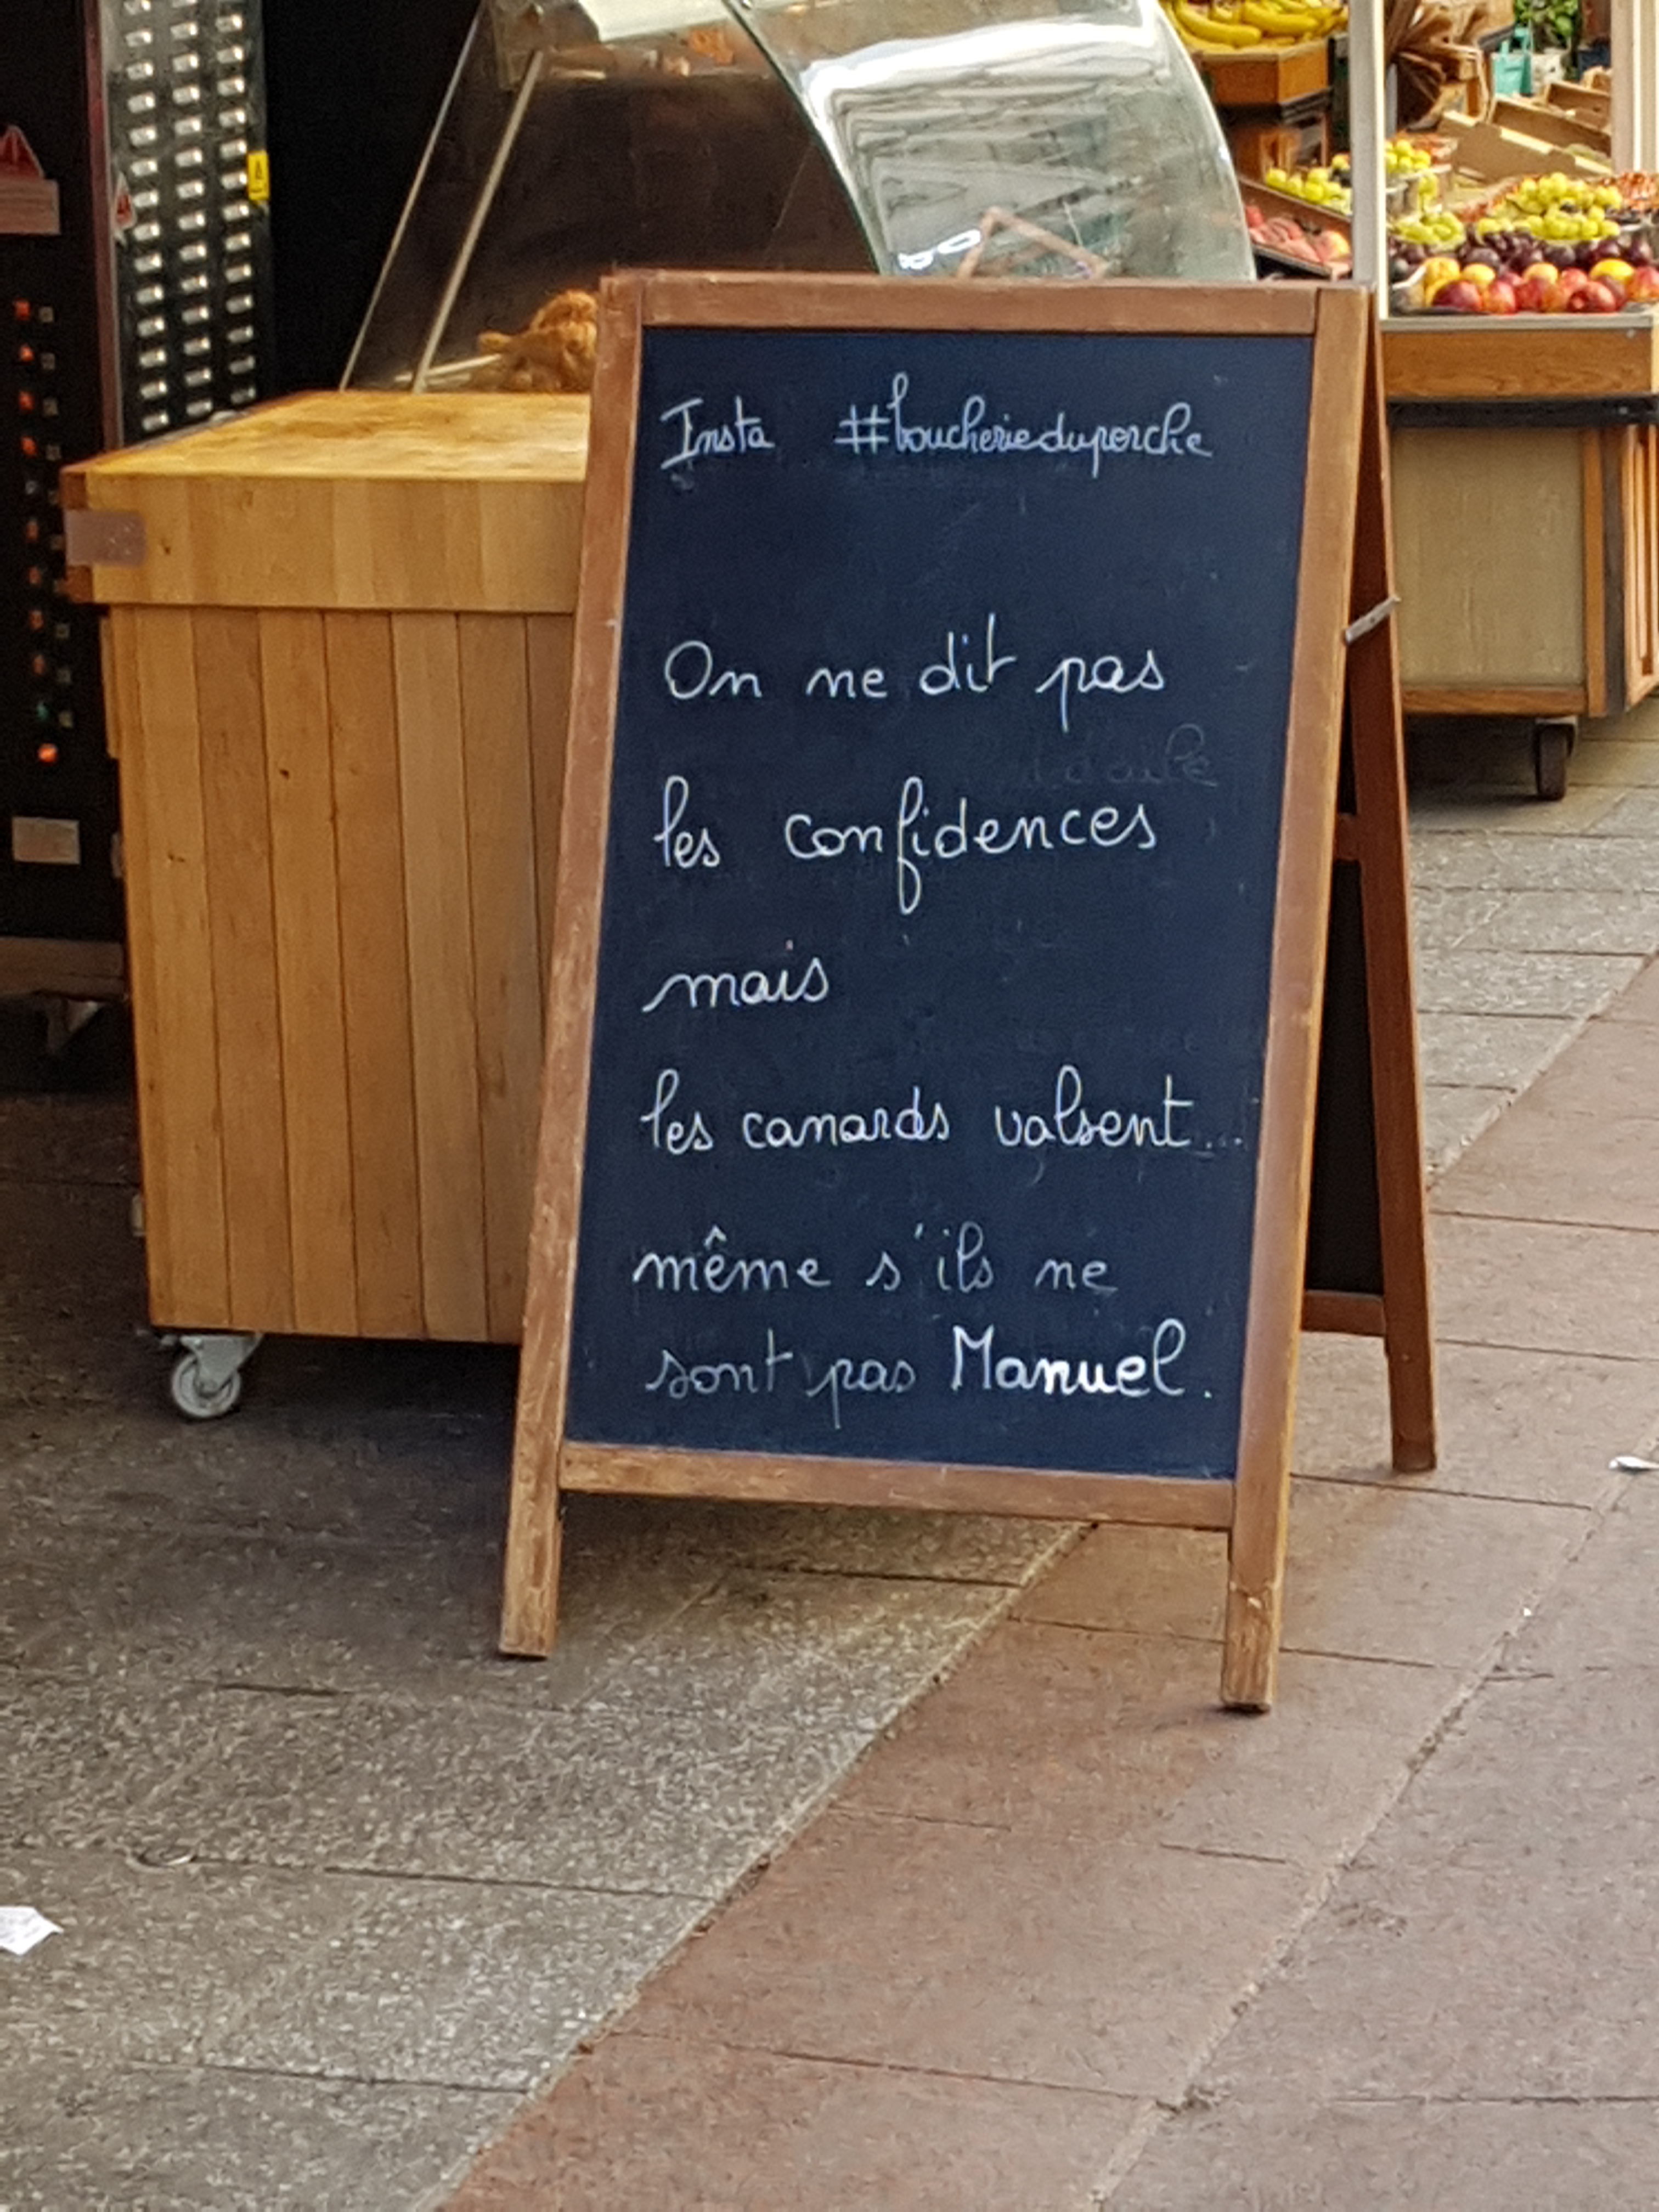 Insta #boucherieduporche
On ne dit pas
les confidences
mais
les canards valsent...
même s'ils ne
sont pas Manuel.